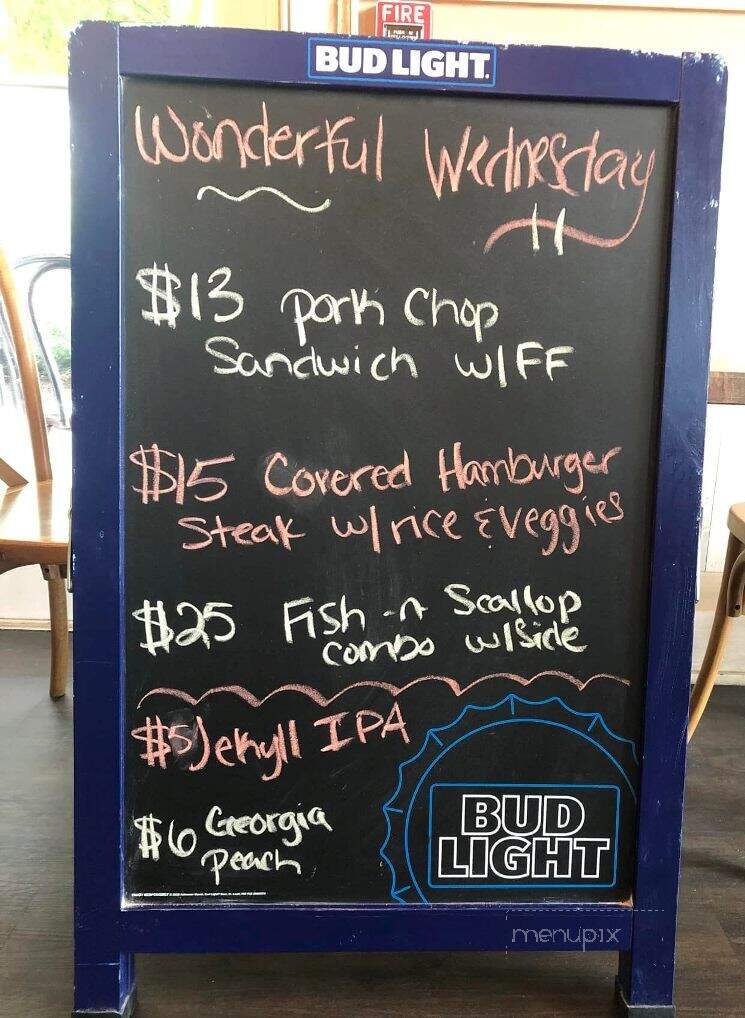 FIRE
BUD LIGHT.
Wonderful Wednesday
$13 pork Chop
Sandwich w/FF
$15 Covered Hamburger
Steak w/rice & veggies
$25 Fish -n Scallop
combo w/side
$5 Jekyll IPA
$6 Georgia
peach
BUD
LIGHT
menupix